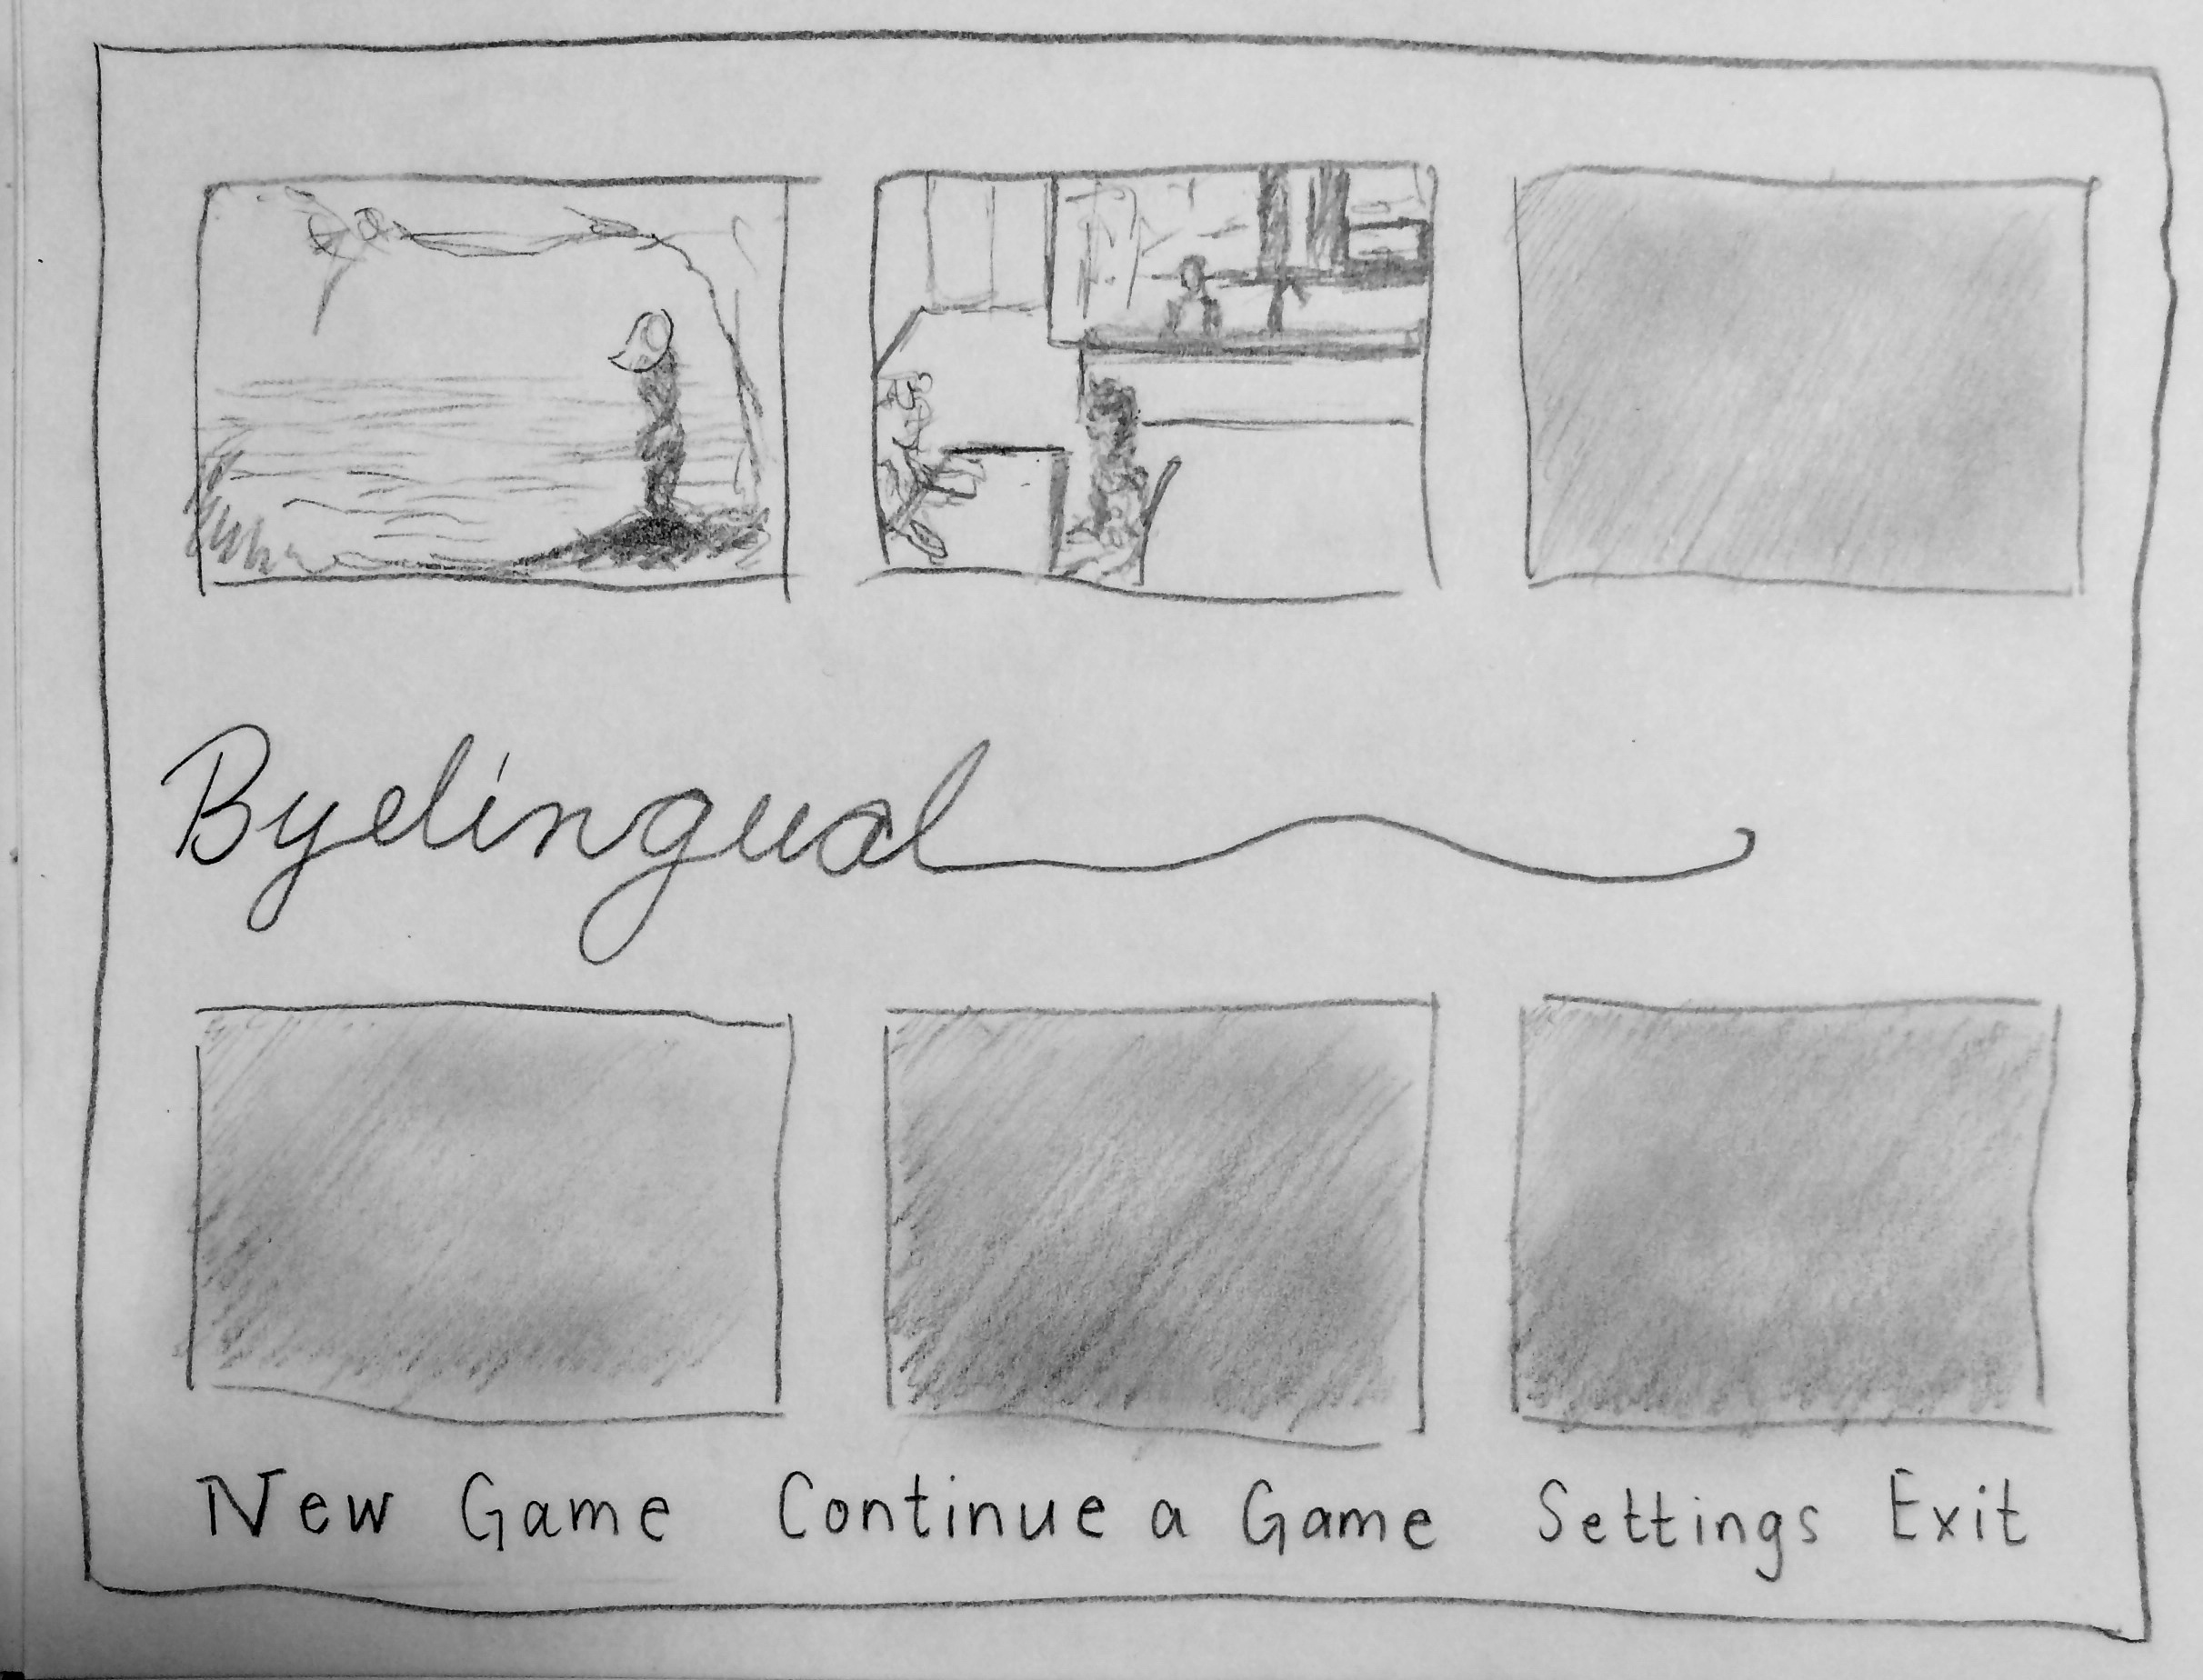 Byelingual
New Game Continue a Game Settings Exit